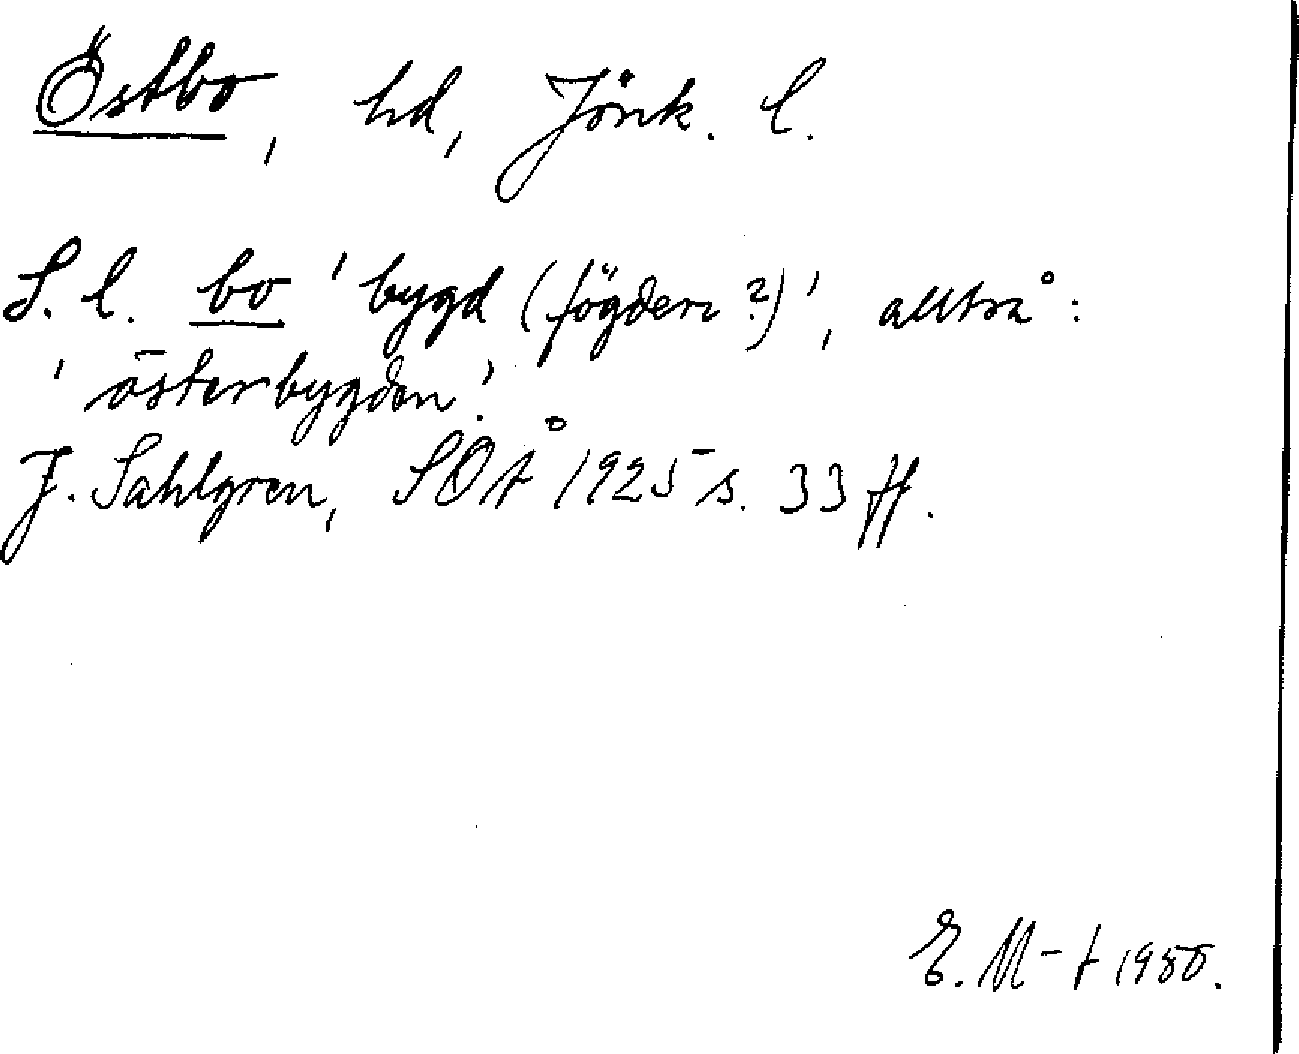 Östbo, hd, Jönk. l.
S. l. bo 'bygd (fögderi?)', alltså:
'österbygden'.
J. Sahlgren, SOÅ 1925 s. 33 ff.
E. M-t 1950.